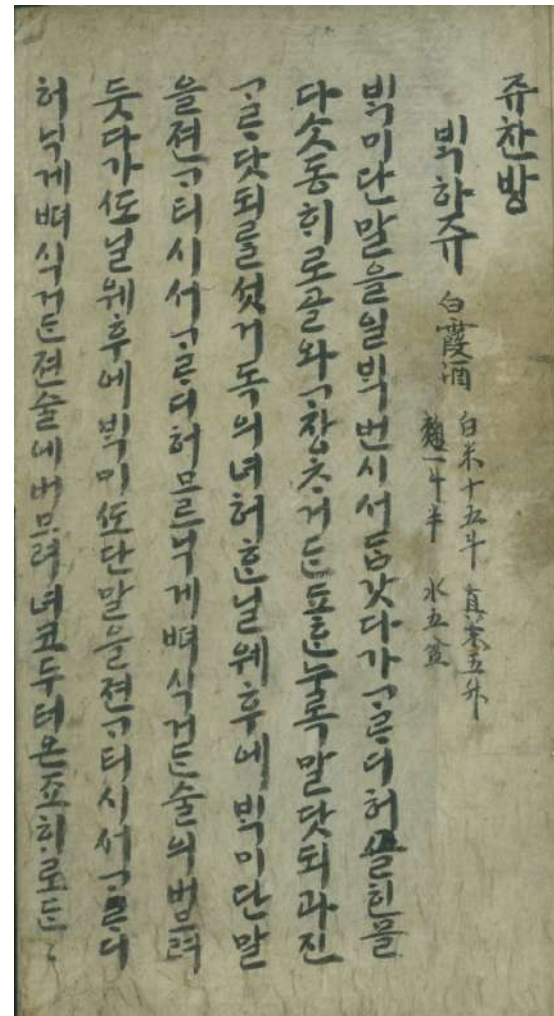 쥬찬방
ᄇᆡᆨ하쥬 白霞酒 白米十五斗 真末五升
麴一斗半 水五盆
ᄇᆡᆨ미단말을일ᄇᆡᆨ번시서ᄃᆞᆷ갓다가ᄀᆞᄅᆞ디허ᄭᅳᆯ힌믈
다ᄉᆞᆺ동ᄒᆡ로골와ᄀᆞ장ᄎᆞ거든됴ᄒᆞᆫ누록말닷되과진
ᄀᆞᄅᆞ닷되ᄅᆞᆯ섯거독의녀허ᄒᆞᆫ닐웨후에ᄇᆡᆨ미단말
을젼ᄀᆞ티시서ᄀᆞᄅᆞ디허므르닉게ᄠᅧ식거든술의버므려
둣다가ᄯᅩ닐웨후에ᄇᆡᆨ미ᄯᅩ단말을젼ᄀᆞ티시서ᄀᆞᄅᆞ디
허닉게ᄠᅧ식거든젼술에버므려녀코두터온죠ᄒᆡ로ᄃᆞᆫ〻